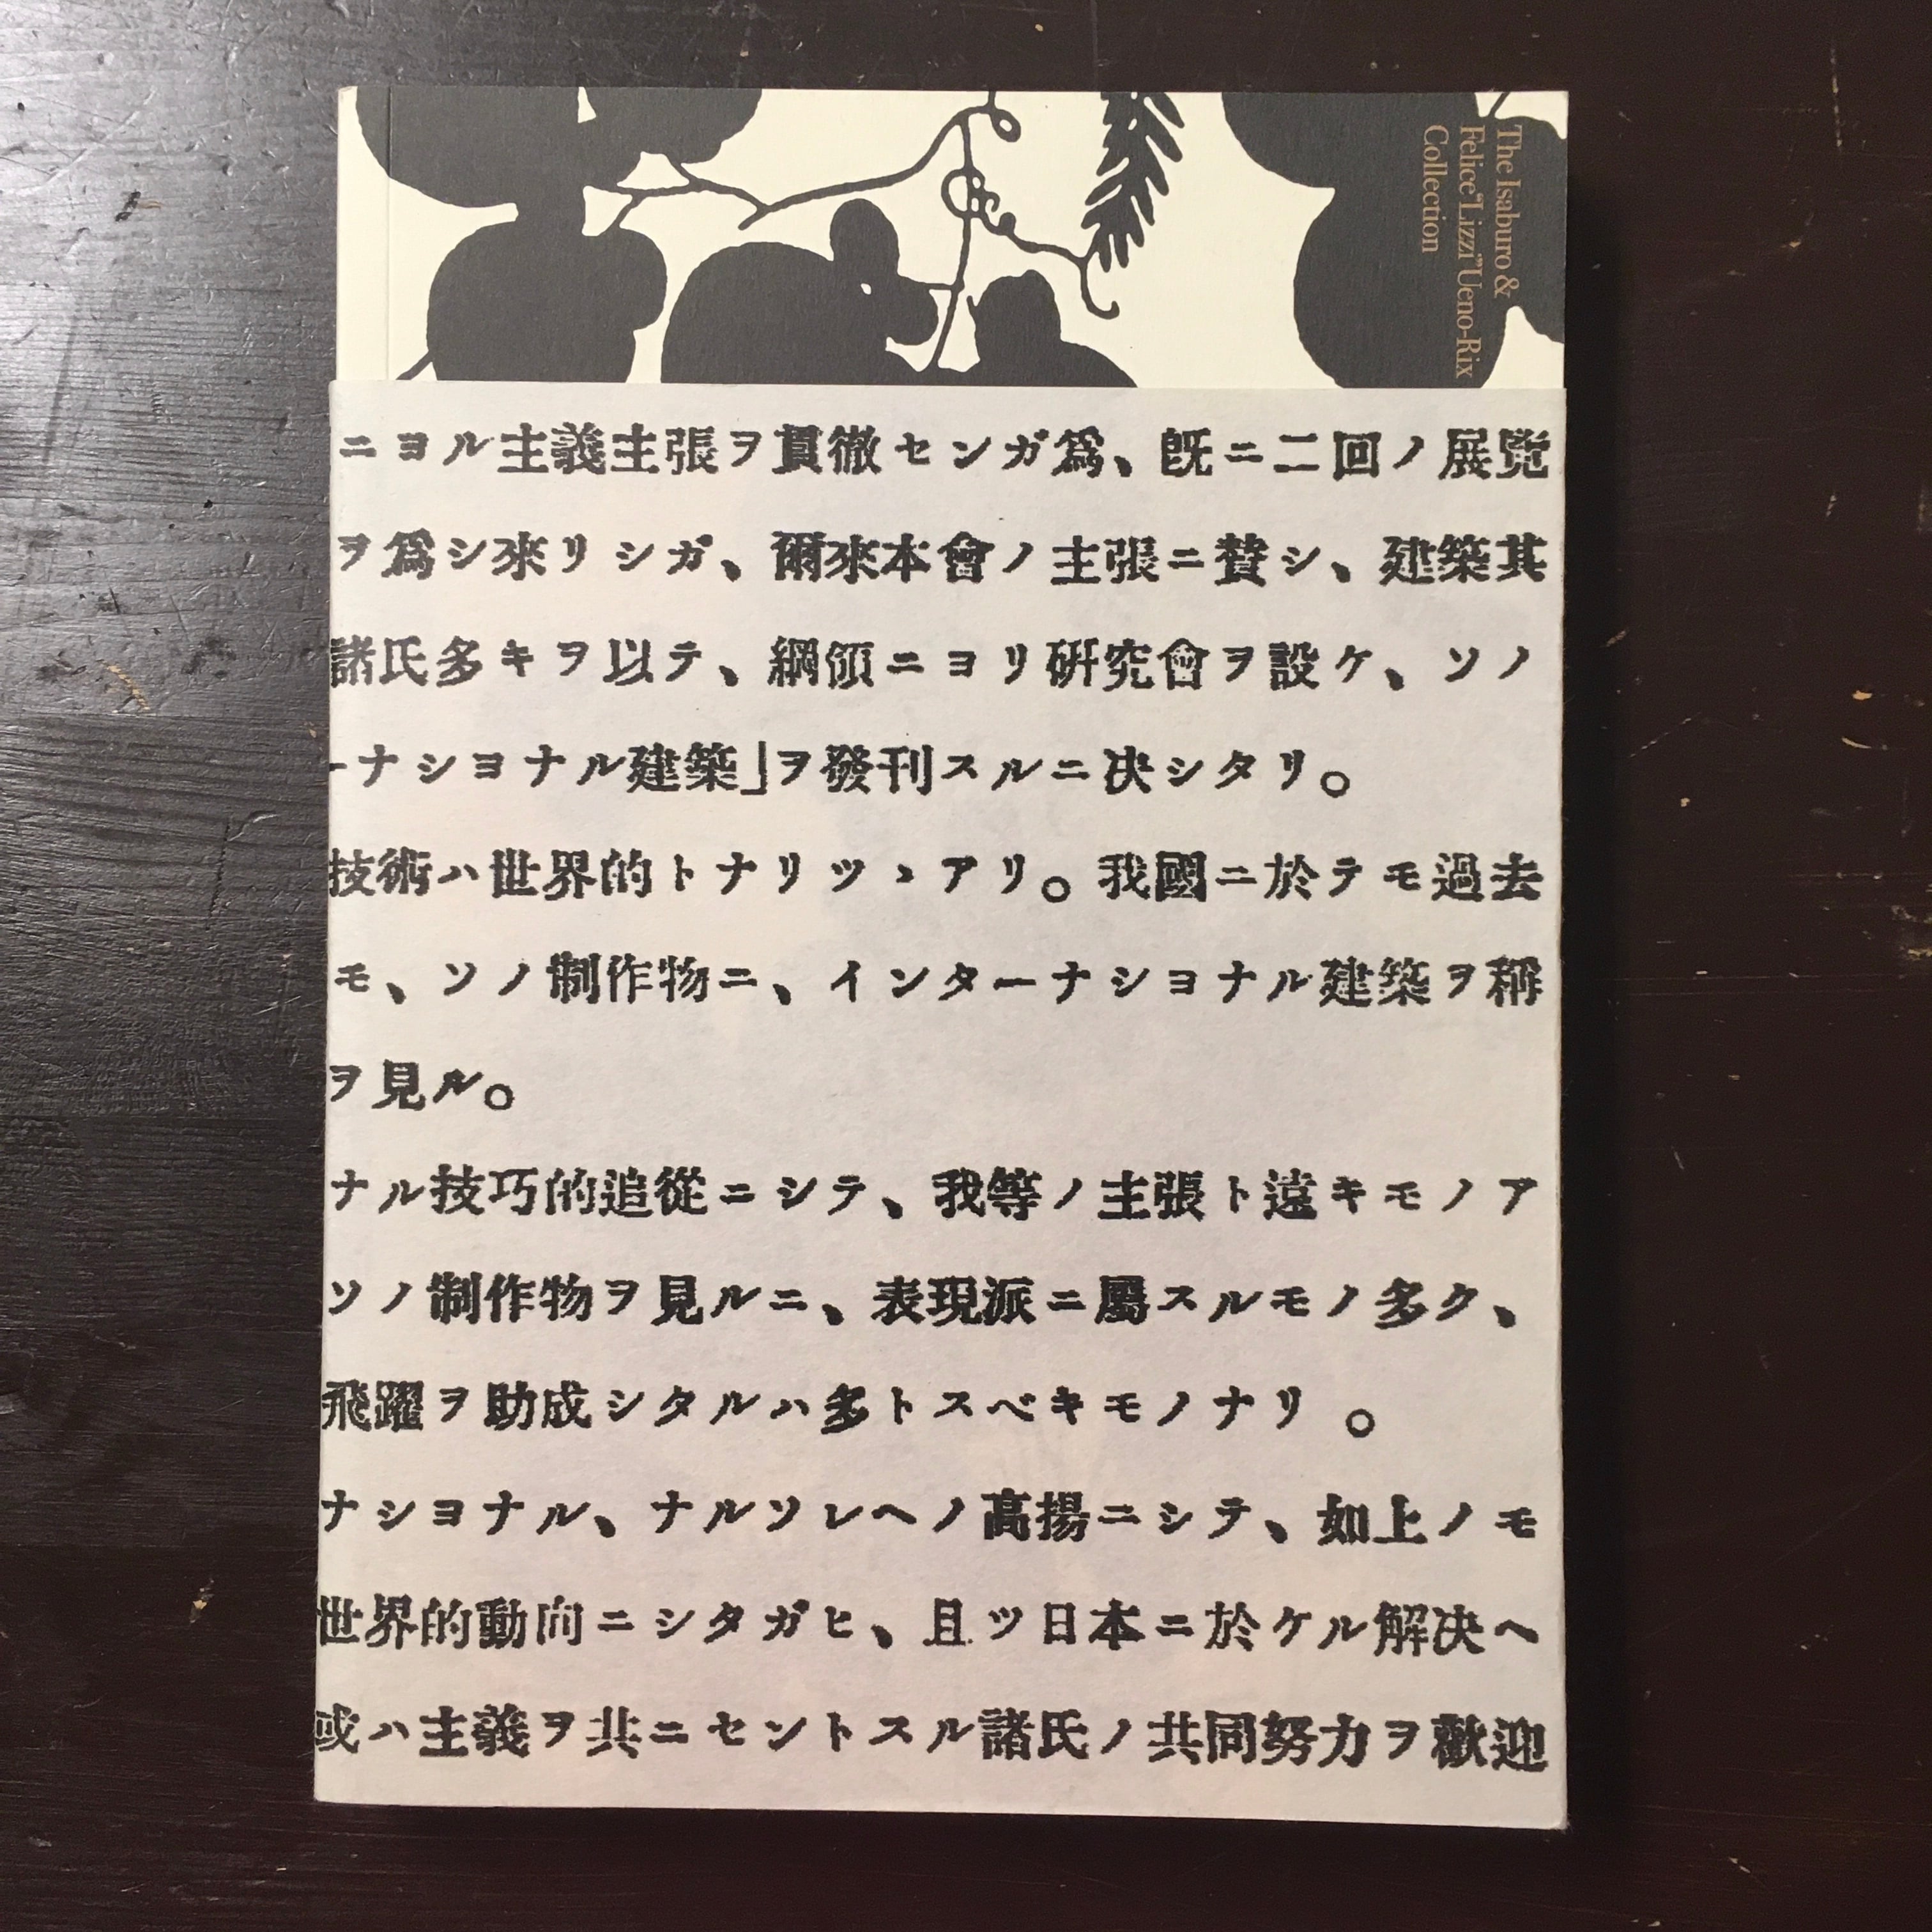 The Isaburo &
Felice "Lizzi" Ueno-Rix
Collection
ニヨル主義主張ヲ貫徹センガ爲、既ニ二回ノ展覽
ヲ爲シ來リシガ、爾來本會ノ主張ニ賛シ、建築其
諸氏多キヲ以テ、綱領ニヨリ硏究會ヲ設ケ、ソノ
ーナシヨナル建築」ヲ發刊スルニ决シタリ。
技術ハ世界的トナリツヽアリ。我國ニ於テモ過去
モ、ソノ制作物ニ、インターナシヨナル建築ヲ稱
ヲ見ル。
ナル技巧的追從ニシテ、我等ノ主張ト遠キモノア
ソノ制作物ヲ見ルニ、表現派ニ屬スルモノ多ク、
飛躍ヲ助成シタルハ多トスベキモノナリ。
ナシヨナル、ナルソレヘノ高揚ニシテ、如上ノモ
世界的動向ニシタガヒ、且ツ日本ニ於ケル解决ヘ
或ハ主義ヲ共ニセントスル諸氏ノ共同努力ヲ歡迎